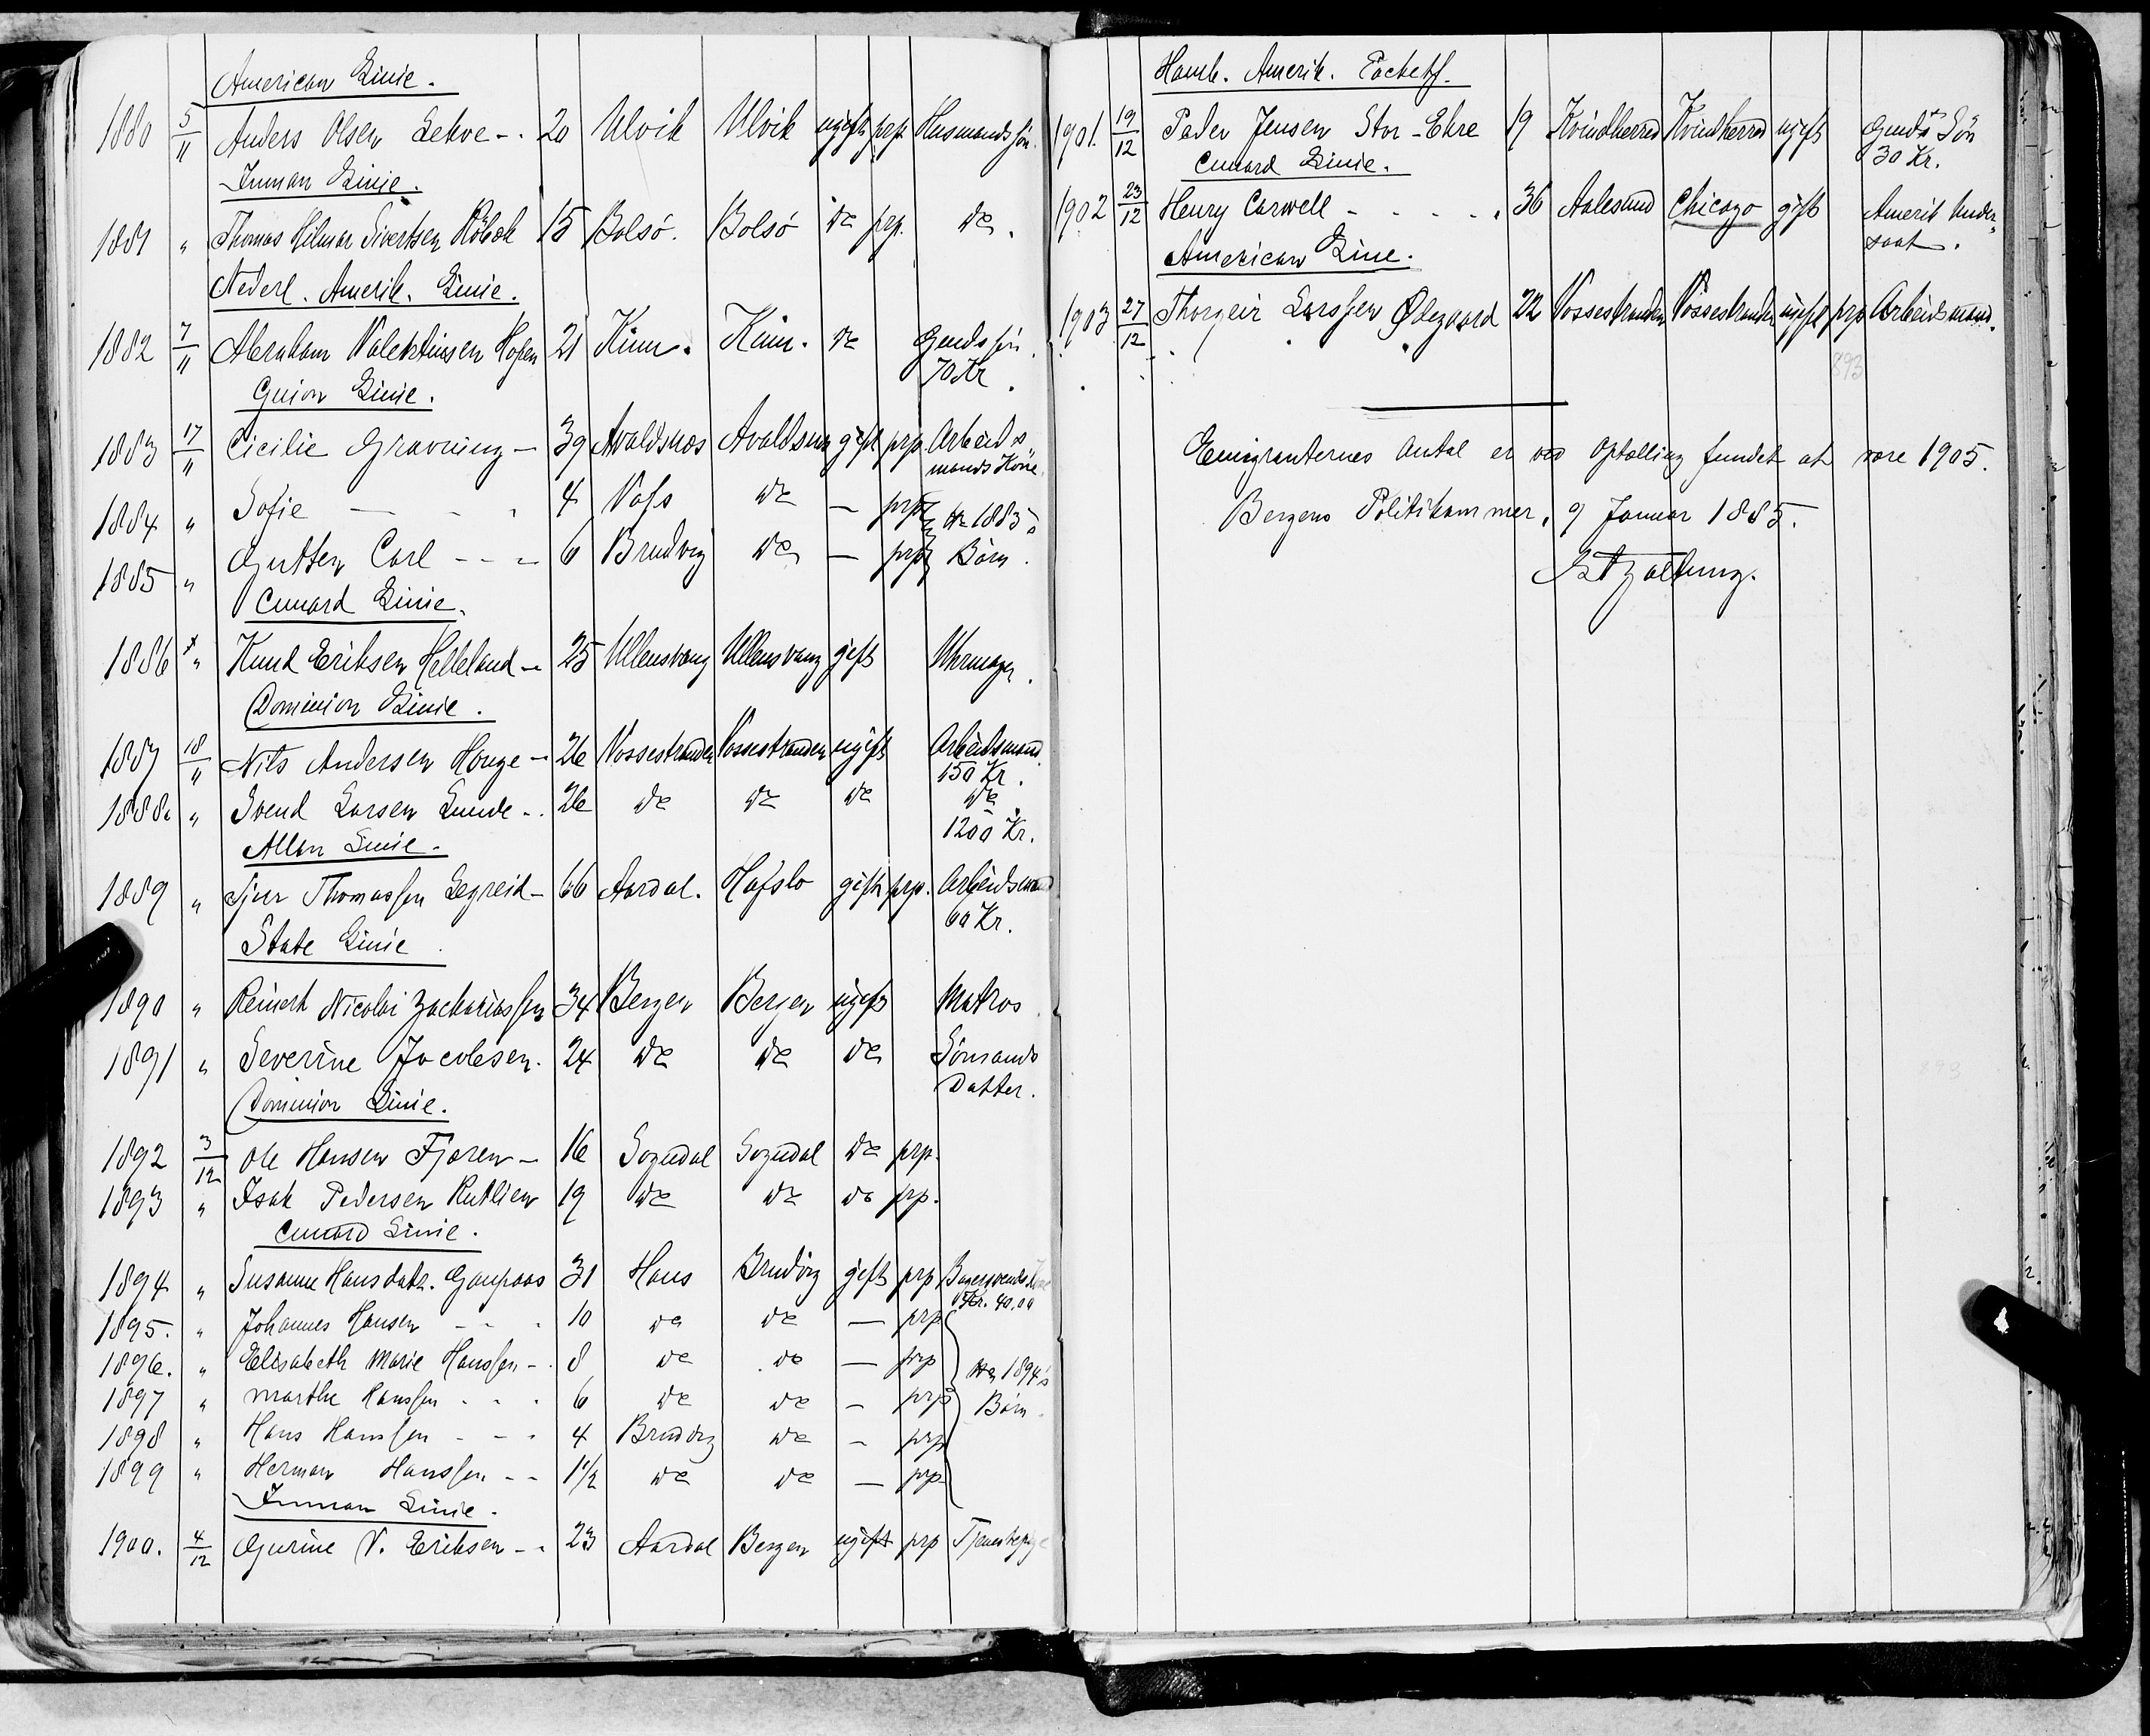 American Linie.
1880 5/11 Anders Olsen Lekve - . 20 Ulvik Ulvik ugift prp. Husmandssøn.
Inman Linie.
1881 " Thomas Hilmar Sivertsen Röbek 15 Bolsö. Bolsö do prp. do.
Nederl. Amerik. Linie.
1882 7/11 Abraham Valentinsen Hopen 21 Kinn. Kinn. do Gmdssøn.
70 Kr.
Guion Linie.
1883 17/11 Cicilie Gravning - 39 Avaldsnæs Avaldsnæs gift prp. Arbeids
mands Kone.
1884 " Sofie - - - 4 Voss do - prp No 1883s
1885 " Gutten Carl - - - 6 Bruvig do - prp Børn.
Cunard Linie.
1886 x " Knud Eriksen Helleland - 25 Ullensvang Ullensvang gift Uhrmager.
Dominion Linie.
1887 18/11 Nils Andersen Houge - 26 Vossestranden Vossestranden ugift Arbeidsmand
150 Kr.
1888 " Svend Larsen Lunde - . 26 do do do do
1200 Kr.
Allan Linie.
1889 " Sjur Thomassen Legreid - 66 Aardal. Hafslo gift prp. Arbeidsmand
60 Kr.
State Linie.
1890 " Reinert Nicolai Zachariassen 34 Bergen Bergen ugift Matros.
1891 " Severine Jacobsen. 24 do do do Sömands
Datter.
Dominion Linie.
1892 3/12 Ole Hansen Fjæren - 16 Sogndal Sogndal do prp.
1893 " Isak Pedersen Rutlien 19 do do do prp.
Cunard Linie.
1894 " Susanne Hansdatr. Gaupaas 31 Haus Bruvig gift prp Bagersvends Kone
Kr. 40.00
1895. " Johannes Hansen - - - 10 do do - prp
1896. " Elisabeth Marie Hanssen - . 8 do do - prp No 1894's
1897 " Marthe Hanssen - - - 6 do do - prp Børn.
1898 " Hans Hanssen - - - 4 Bruvig do - prp
1899 " Herman Hanssen - - 1 1/2 do do - prp
Inman Linie.
1900. 4/12 Gurine V. Eriksen - . 23 Aardal Bergen ugift prp Tjenestepige
Hamb. Amerik. Packetf.
1901. 19/12 Peder Jensen Stor-Ekre 19 Kvindherred Kvindherred ugift Gmds Søn
30 Kr.
Cunard Linie.
1902 23/12 Henry Carwell - - - - . 36 Aalesund Chicago gift Amerik Under-
saat.
American Line.
1903 27/12 Thorgeir Larssen Ødegaard 22 Vossestranden Vossestranden ugift prp Arbeidsmand.
893
Emigranternes Antal er ved Optælling fundet at være 1905.
Bergens Politikammer, 9 Januar 1885.
893